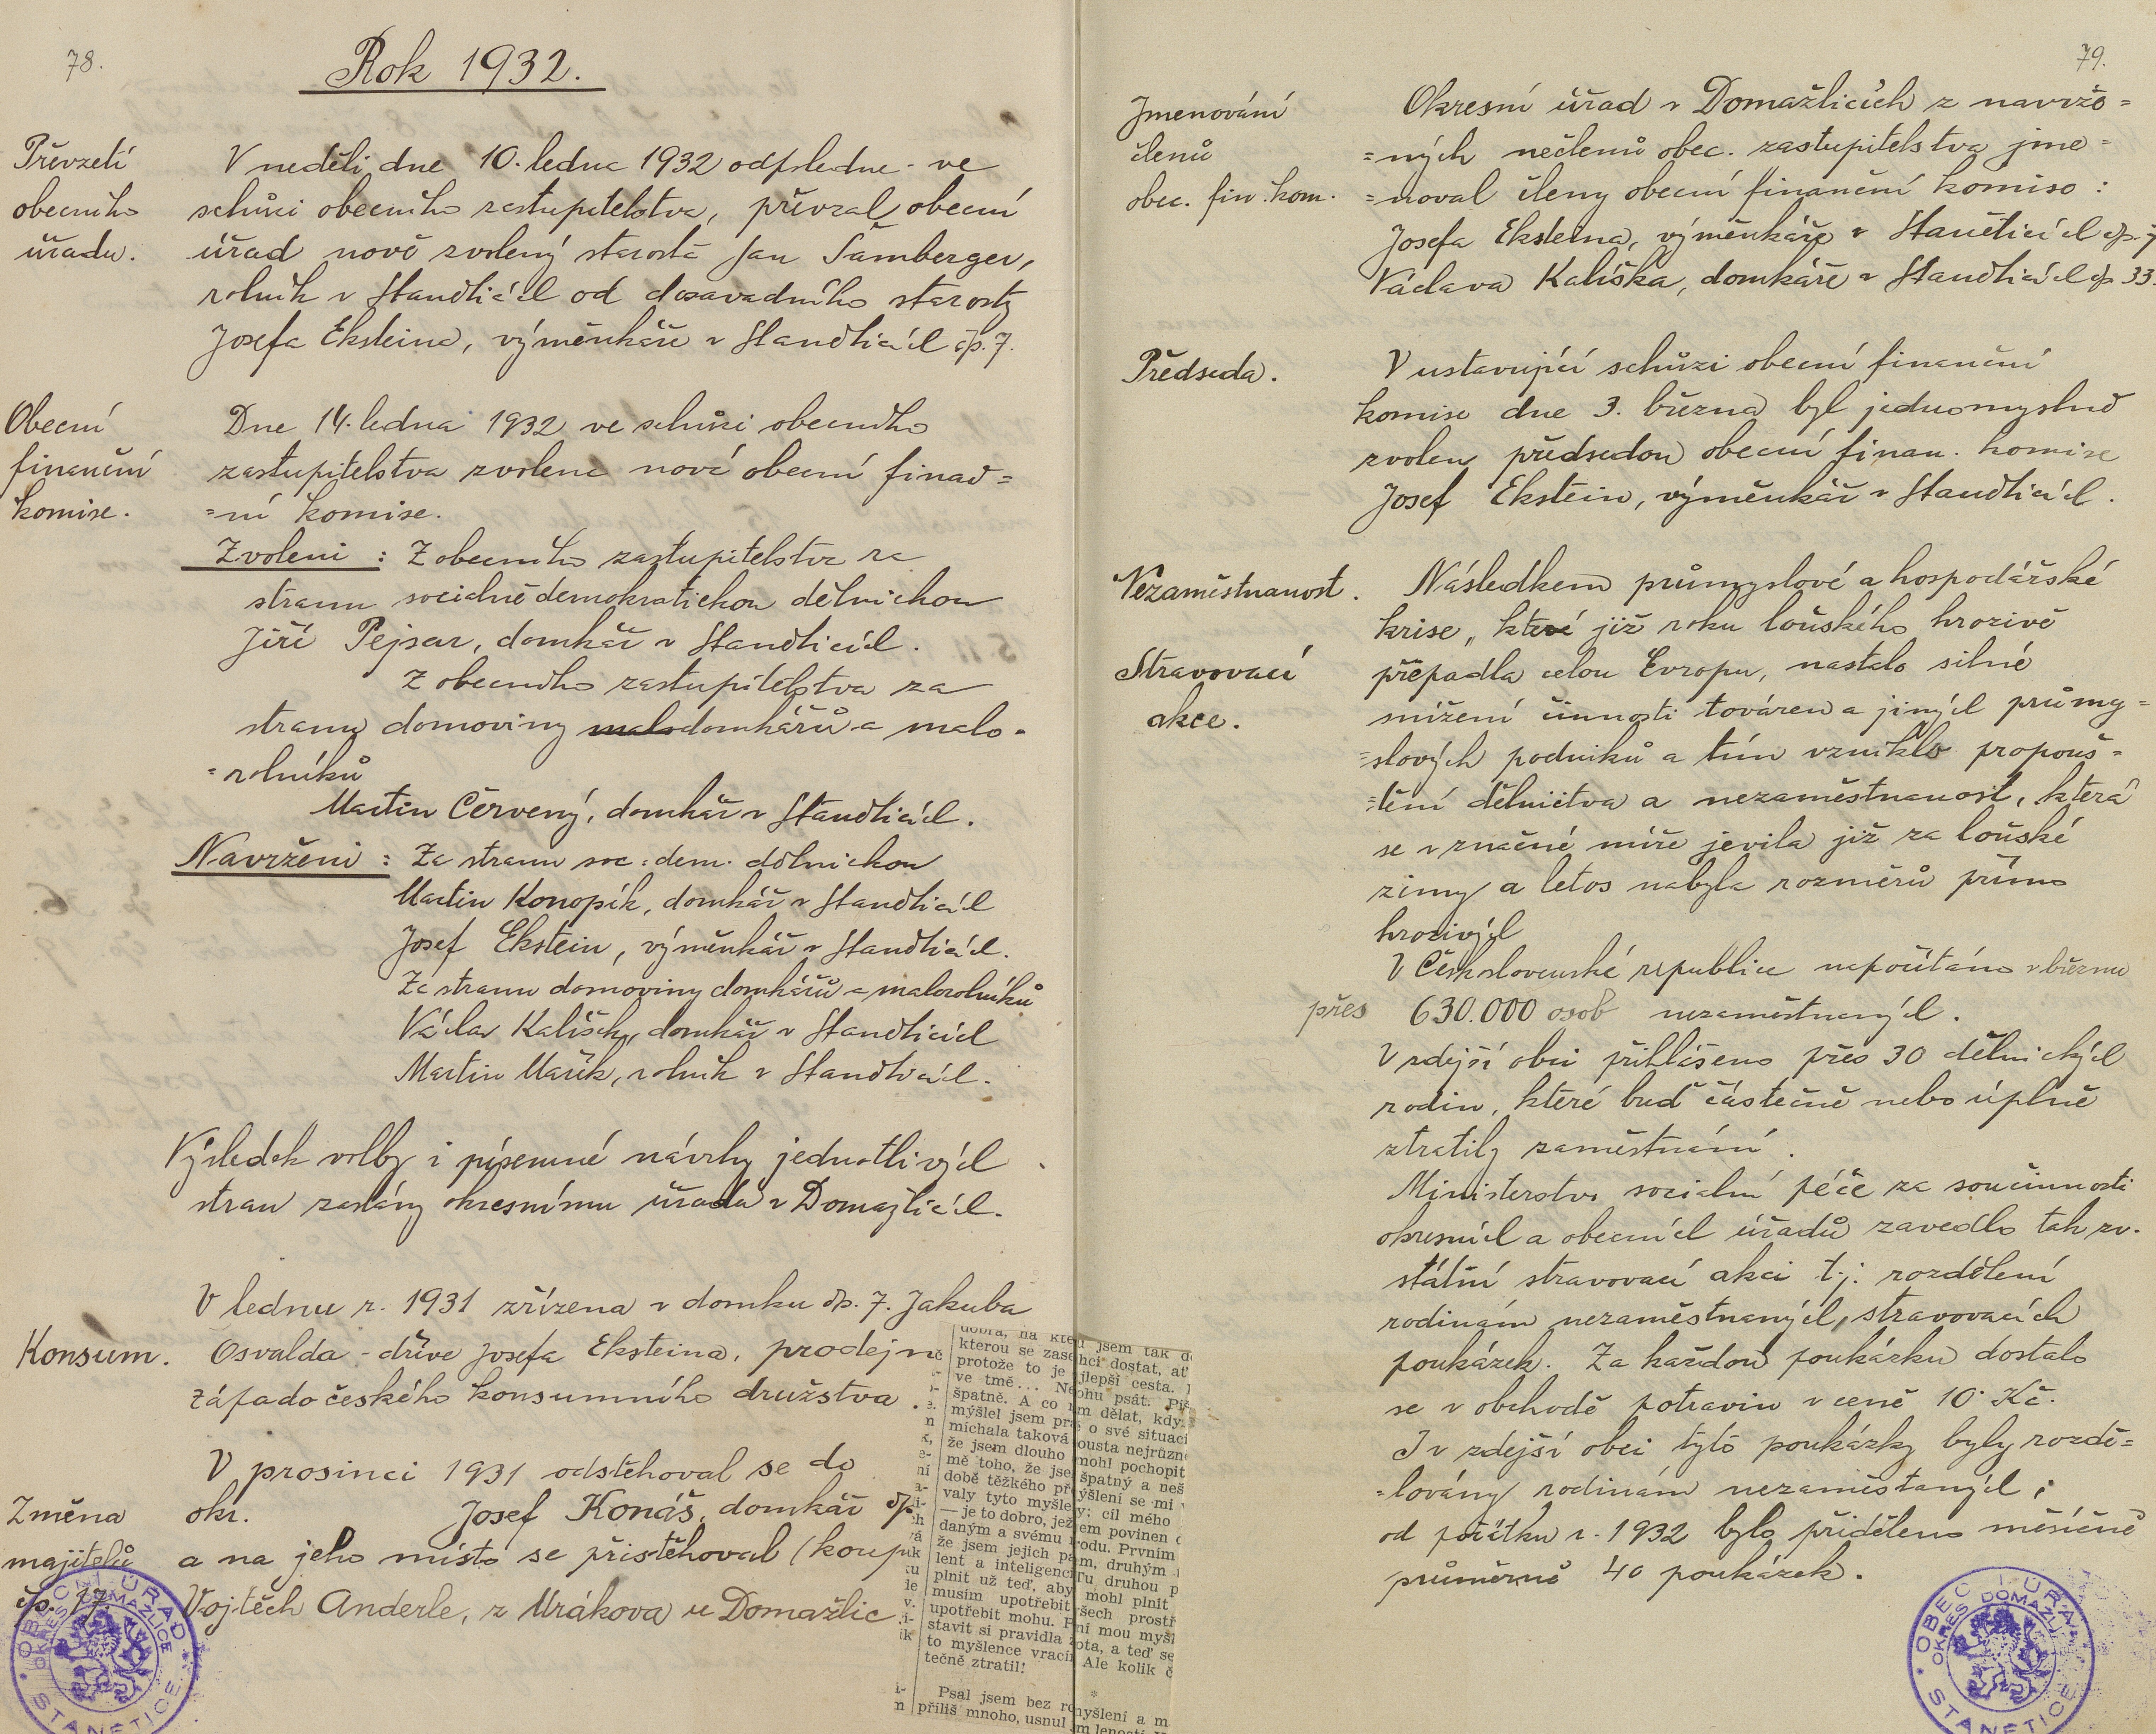 78.
Rok 1932.
Převzetí
obecního
úřadu.
V neděli dne 10. ledna 1932 odpoledne - ve
schůzi obecního zastupitelstva, převzal obecní
úřad nově zvolený starosta Jan Šamberger,
rolník v Staněticích od dosavadního starosty
Josefa Eksteina, výměnkáře v Staněticích čp. 7.
Obecní
finanční
komise.
Dne 14. ledna 1932 ve schůzi obecního
zastupitelstva zvolena nová obecní finan=
=ní komise.
Zvoleni : Z obecního zastupitelstva za
stranu sociálně demokratickou dělnickou
Jiří Pejsar, domkář v Staněticích.
Z obecního zastupitelstva za
stranu domoviny malodomkářů a malo-
=rolníků
Martin Červený, domkář v Staněticích.
Navrženi : Za stranu soc. dem. dělnickou
Martin Konopík, domkář v Staněticích
Josef Ekstein, výměnkář v Staněticích.
Za stranu domoviny domkářů a malorolníků
Václav Kalíšek, domkář v Staněticích
Martin Mařík, rolník v Staněticích.
Výsledek volby i písemné návrhy jednotlivých
stran zaslány okresnímu úřadu v Domažlicích.
Konsum.
V lednu r. 1931 zřízena v domku čp. 7. Jakuba
Osvalda - dříve Josefa Eksteina, prodejna
západočeského konsumního družstva.
Změna
majitelů
čp. 17
V prosinci 1931 odstěhoval se do
okr. Josef Konáš, domkář čp.
a na jeho místo se přistěhoval (koup
Vojtěch Anderle, z Mrákova u Domažlic
OBECNÍ ÚŘAD
OKRES DOMAŽLICE
STANĚTICE
dobra, na kte
kterou se zase
protože to je
ve tmě... Ne
špatně. A co
mýšlel jsem
míchala taková
že jsem dlouho
mě toho, že jse
době těžkého př
valy tyto myšle
— je to dobro, jež
daným a svému
že jsem jejich
lent a inteligenc
plnit už teď, aby
musím upotřebit
upotřebit mohu.
stavit si pravidla
to myšlence vrací
tečně ztratil!
Psal jsem bez
příliš mnoho, usnul
jsem tak
hci dostat, ať
jlepší cesta.
ohu psát.
m dělat, kdy
o své situaci
ousta nejrůzn
mohl pochopit
špatný a neš
ýšlení se mi
y: cíl mého
em povinen
rodu. Prvním
m, druhým
Tu druhou p
mohl plnit
šech prostř
ní mou myšl
ota, a teď se
Ale kolik č
*
myšlení a m
m leností
79.
Jmenování
členů
obec. fin. kom.
Okresní úřad v Domažlicích z navrže=
=ných nečlenů obec. zastupitelstva jme=
=noval členy obecní finanční komise :
Josefa Eksteina, výměnkáře v Staněticích čp. 7
Václava Kalíška, domkáře v Staněticích čp. 33.
Předseda.
V ustavující schůzi obecní finanční
komise dne 3. března byl jednomyslně
zvolen předsedou obecní finan. komise
Josef Ekstein, výměnkář v Staněticích.
Nezaměstnanost.
Stravovací
akce.
Následkem průmyslové a hospodářské
krise, která již roku loňského hrozivě
přepadla celou Evropu, nastalo silné
snížení činnosti továren a jiných průmy=
=slových podniků a tím vzniklo propouš=
=tění dělnictva a nezaměstnanost, která
se v značné míře jevila již za loňské
zimy a letos nabyla rozměrů přímo
hrozivých
V Československé republice napočítáno v březnu
přes 630.000 osob nezaměstnaných.
V zdejší obci přihlášeno přes 30 dělnických
rodin, které buď částečně nebo úplně
ztratily zaměstnání.
Ministerstvo sociální péče za součinnosti
okresních a obecních úřadů zavedlo tak zv.
státní stravovací akci t.j. rozdělení
rodinám nezaměstnaných, stravovacích
poukázek. Za každou poukázku dostalo
se v obchodě potravin v ceně 10 Kč.
I v zdejší obci tyto poukázky byly rozdě=
=lovány rodinám nezaměstaných;
od počátku r. 1932 bylo přiděleno měsíčně
průměrně 40 poukázek.
OBECNÍ ÚŘAD
OKRES DOMAŽLICE
STANĚTICE